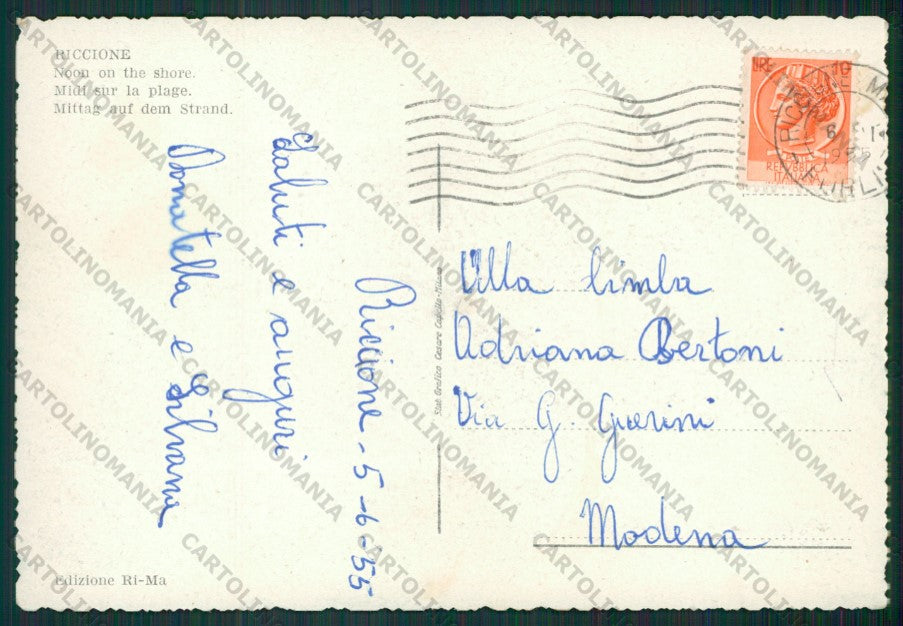 RICCIONE
Noon on the shore.
Midi sur la plage.
Mittag auf dem Strand.
Riccione - 5-6-55
Saluti e auguri
Donatella e Silvana
Edizione Ri-Ma
LIRE 10
REPVBBLICA
ITALIANA
Alla bimba
Adriana Bertoni
Via G. Guerini
Modena
CARTOLINOMANIA